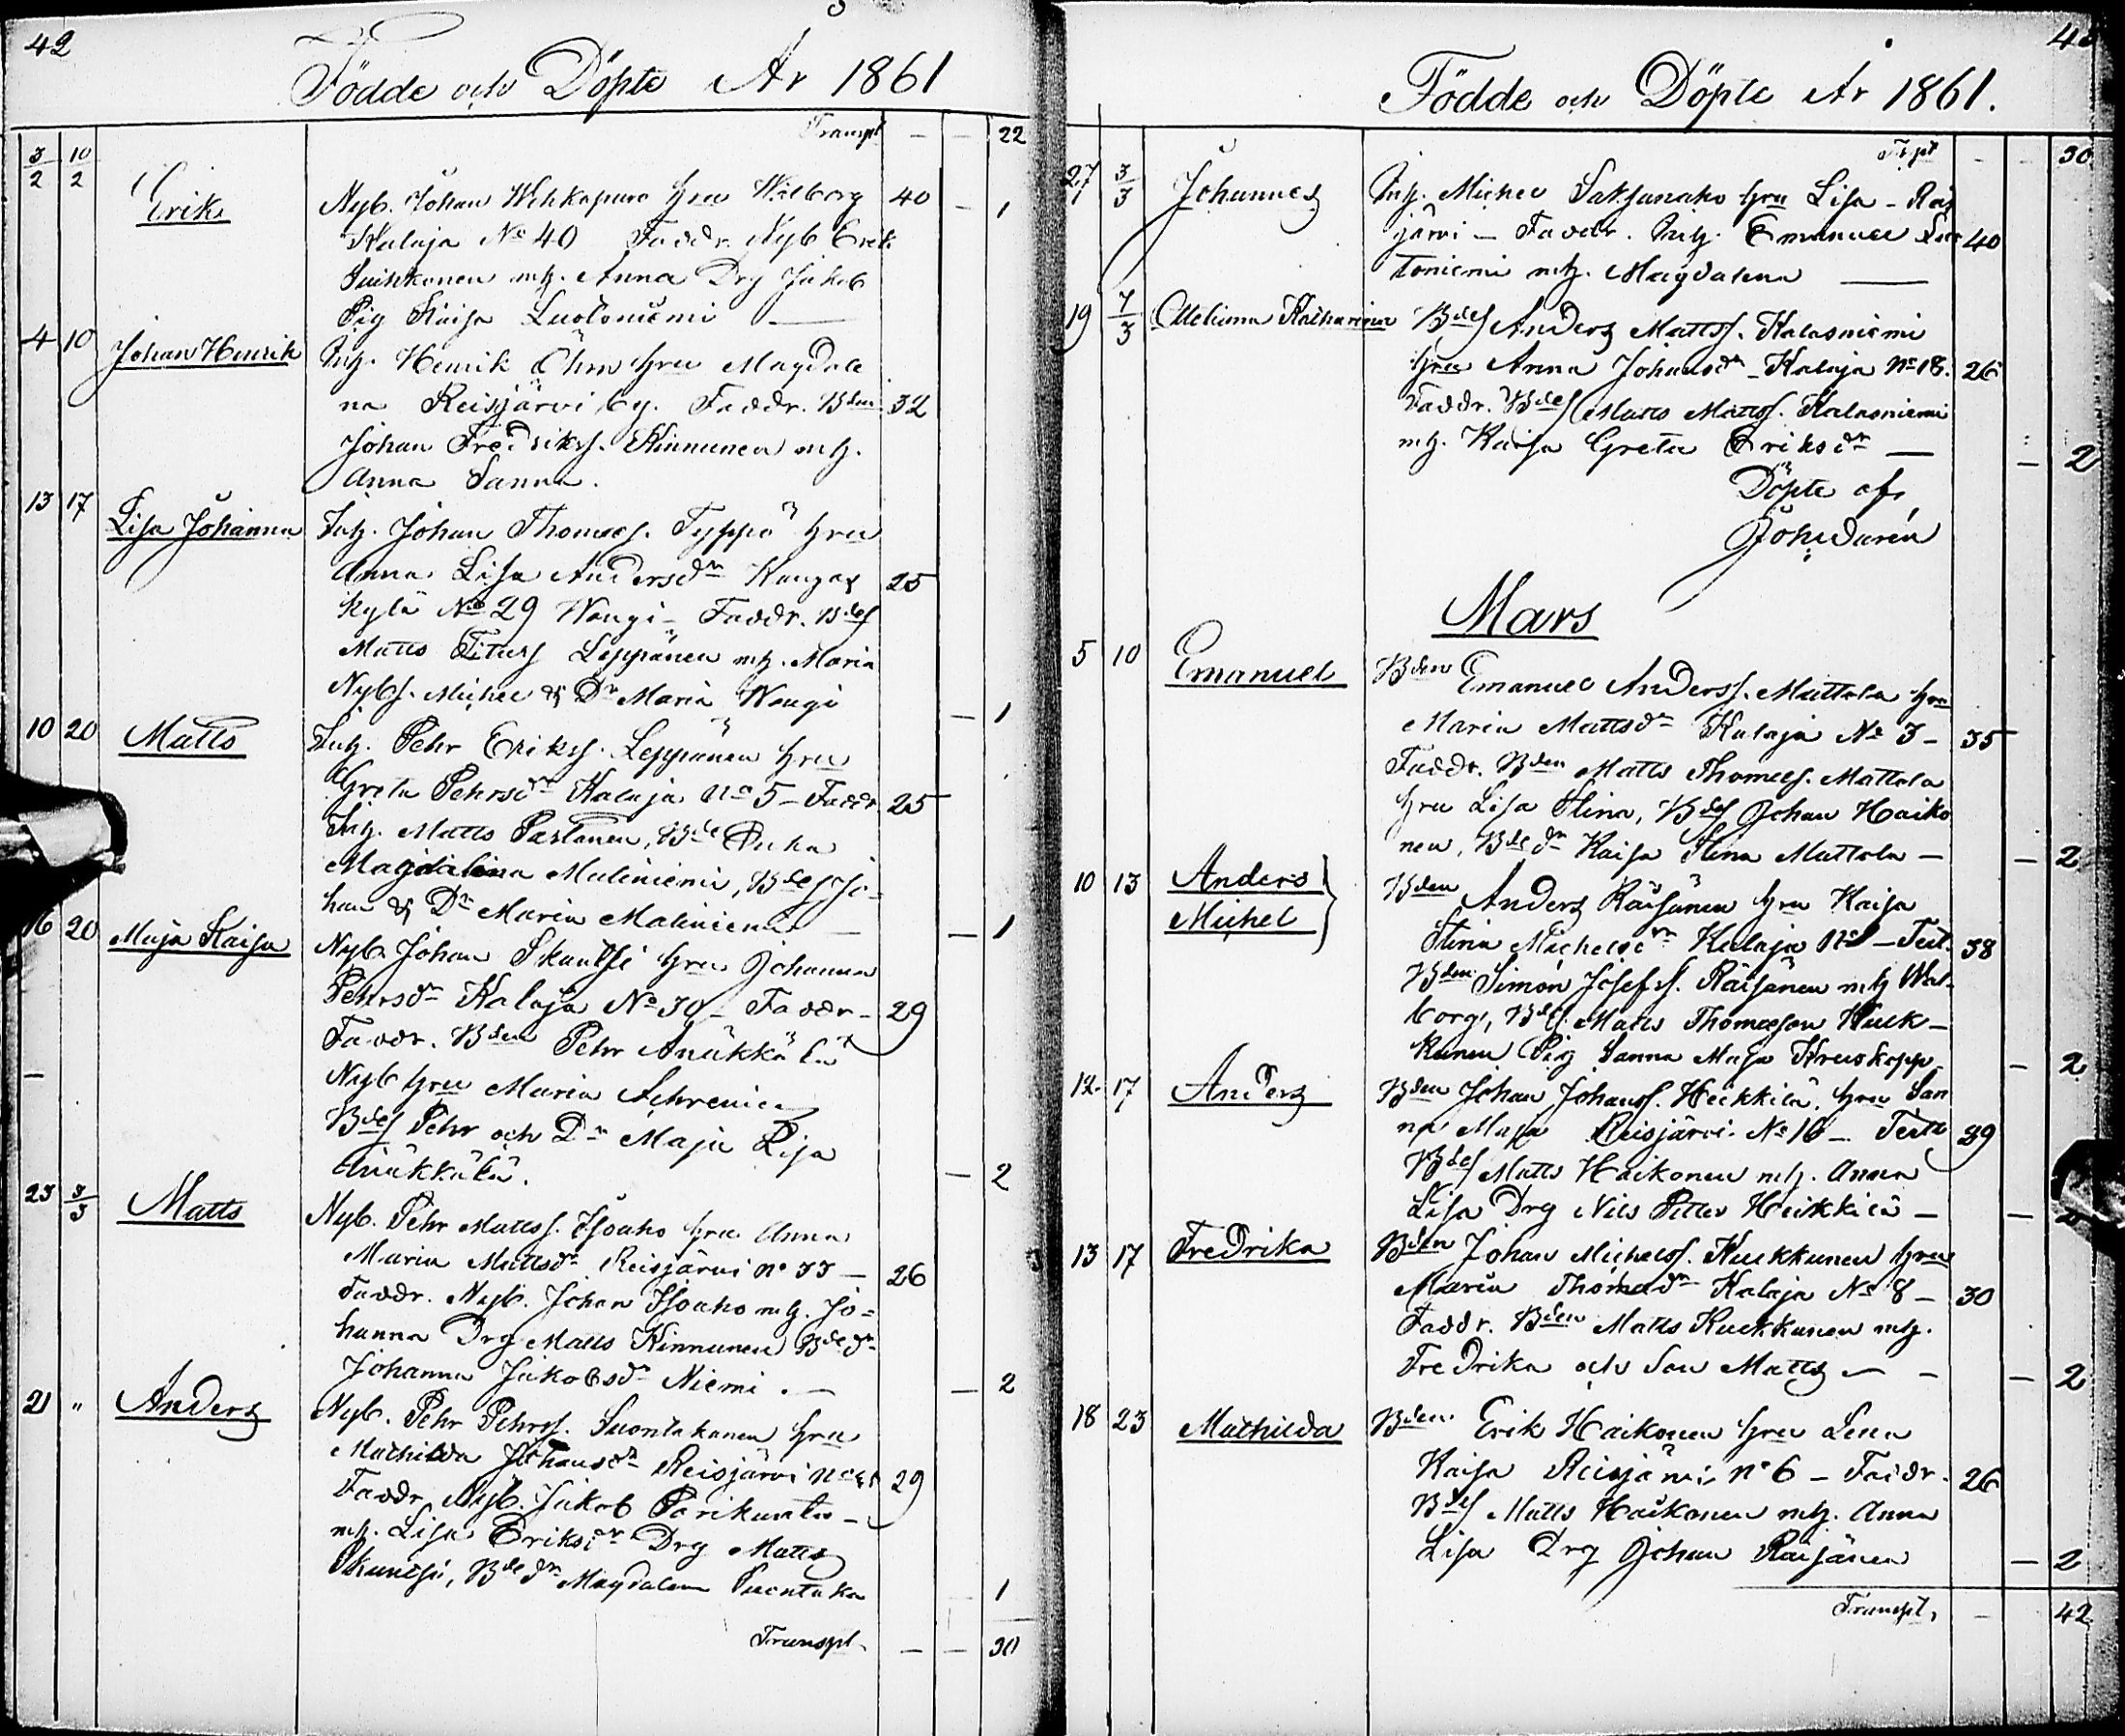 42
Födde och Döpte År 1861
Transpt — — 22
3/2 10/2 Erik Nyb. Johan Wehkapuro hru Walborg 40 — 1
Kalaja No 40 Faddr. Nyb Erik
Puihkonen mh. Anna Drg Jakob
Pig Kaisa Luotoniemi —
4 10 Johan Henrik Inh. Henrik Öhrn hru Magdale
na Reisjärvi by. Faddr. Bden 32
Johan Fredrikss. Kinnunen mh.
Anna Sanna.
13 17 Lisa Johanna Inh. Johan Thomass. Typpö hru
Anna Lisa Andersdr Kangas 25
kylä No 29 Wangi — Faddr. Bdes
Matts Titus Leppänen mh. Maria
Nybs. Michel & Dr Maria Wangi — 1
10 20 Matts Inh. Pehr Erikss. Leppänen hru
Greta Pehrsdr Kalaja No 5 — Faddr. 25
Inh. Matts Partanen, Bde
Magdalena Maliniemi, Bdes Jo=
han & Dr Maria Maliniemi — — 1
16 20 Maja Kaisa Nyb. Johan Skantsi hru Johanna
Pehrsdr Kalaja No 30 — Faddr — 29
Faddr. Bden Pehr Anäkkälä
Nyb hru Maria
Bdes Pehr och Dr Maja Lisa
Anäkkälä. — 2
23 3/3 Matts Nyb. Pehr Mattss. Isoaho hru Anna
Maria Mattsdr Reisjärvi No 33 — 26
Faddr. Nyb. Johan Isoaho mh. Jo=
hanna Drg Matts Kinnunen Bde dr
Johanna Jakobsdr Niemi. — — 2
21 " Anders Nyb. Pehr Pehrss. Suontakanen hru
Mathilda Johansdr Reisjärvi No 29
Faddr. Nyb. Jakob —
mh. Lisa Eriksdr Drg Matts
Skantsi, Bde dr Magdalena Suontaka 1
Transpt. — — 30
Födde och Döpte År 1861.
Trpt — — 30
27 3/3 Johannes Inh. Michel Saksanaho hru Lisa — Reis
järvi — Faddr. Inh. Emanuel Luo 40
toniemi mh. Magdalena —
19 7/3 Katharina Bdes Anders Mattss. Kalasniemi
hru Anna Johansdr — Kalaja No 18. 26
Faddr. Bdes Matts Mattss. Kalasniemi
mh. Kaisa Greta Eriksdr — — 2
Döpte af
Mars
5 10 Emanuel Bden Emanuel Anderss. Mattola hru
Maria Mattsdr Kalaja No 3 — 35
Faddr. Bden Matts Thomass. Mattola
hru Lisa Stina, Bdes Johan Haiko
nen, Bde dr Kaisa Stina Mattola — — 2
10 13 Anders Michel } Bden Anders Räisänen hru Kaisa
Stina Michelsdr Kalaja No — Test. 38
Bden Simon Josefss. Räisänen mh Wal=
borg, Bdes. Matts Thomasson Kuk—
kunen Pig Sanna Maja Kruskopp — 2
12 17 Anders Bden Johan Johanss. Heikkilä hru San
na Maja Reisjärvi No 16 — Test 39
Bdes Matts Haikonen mh. Anna
Lisa Drg Nils Petter Heikkilä — —
13 17 Fredrika Bden Johan Michelss. Kukkunen hru
Maria Thomasdr Kalaja No 8 — 30
Faddr. Bden Matts Kukkunen mh.
Fredrika och Son Matts — — — 2
18 23 Mathilda Bden. Erik Haikonen hru Lena
Kaisa Reisjärvi No 6 — Faddr. 26
Bdes Matts Haikonen mh. Anna
Lisa Drg Johan Räisänen — 2
Transpt. — 42